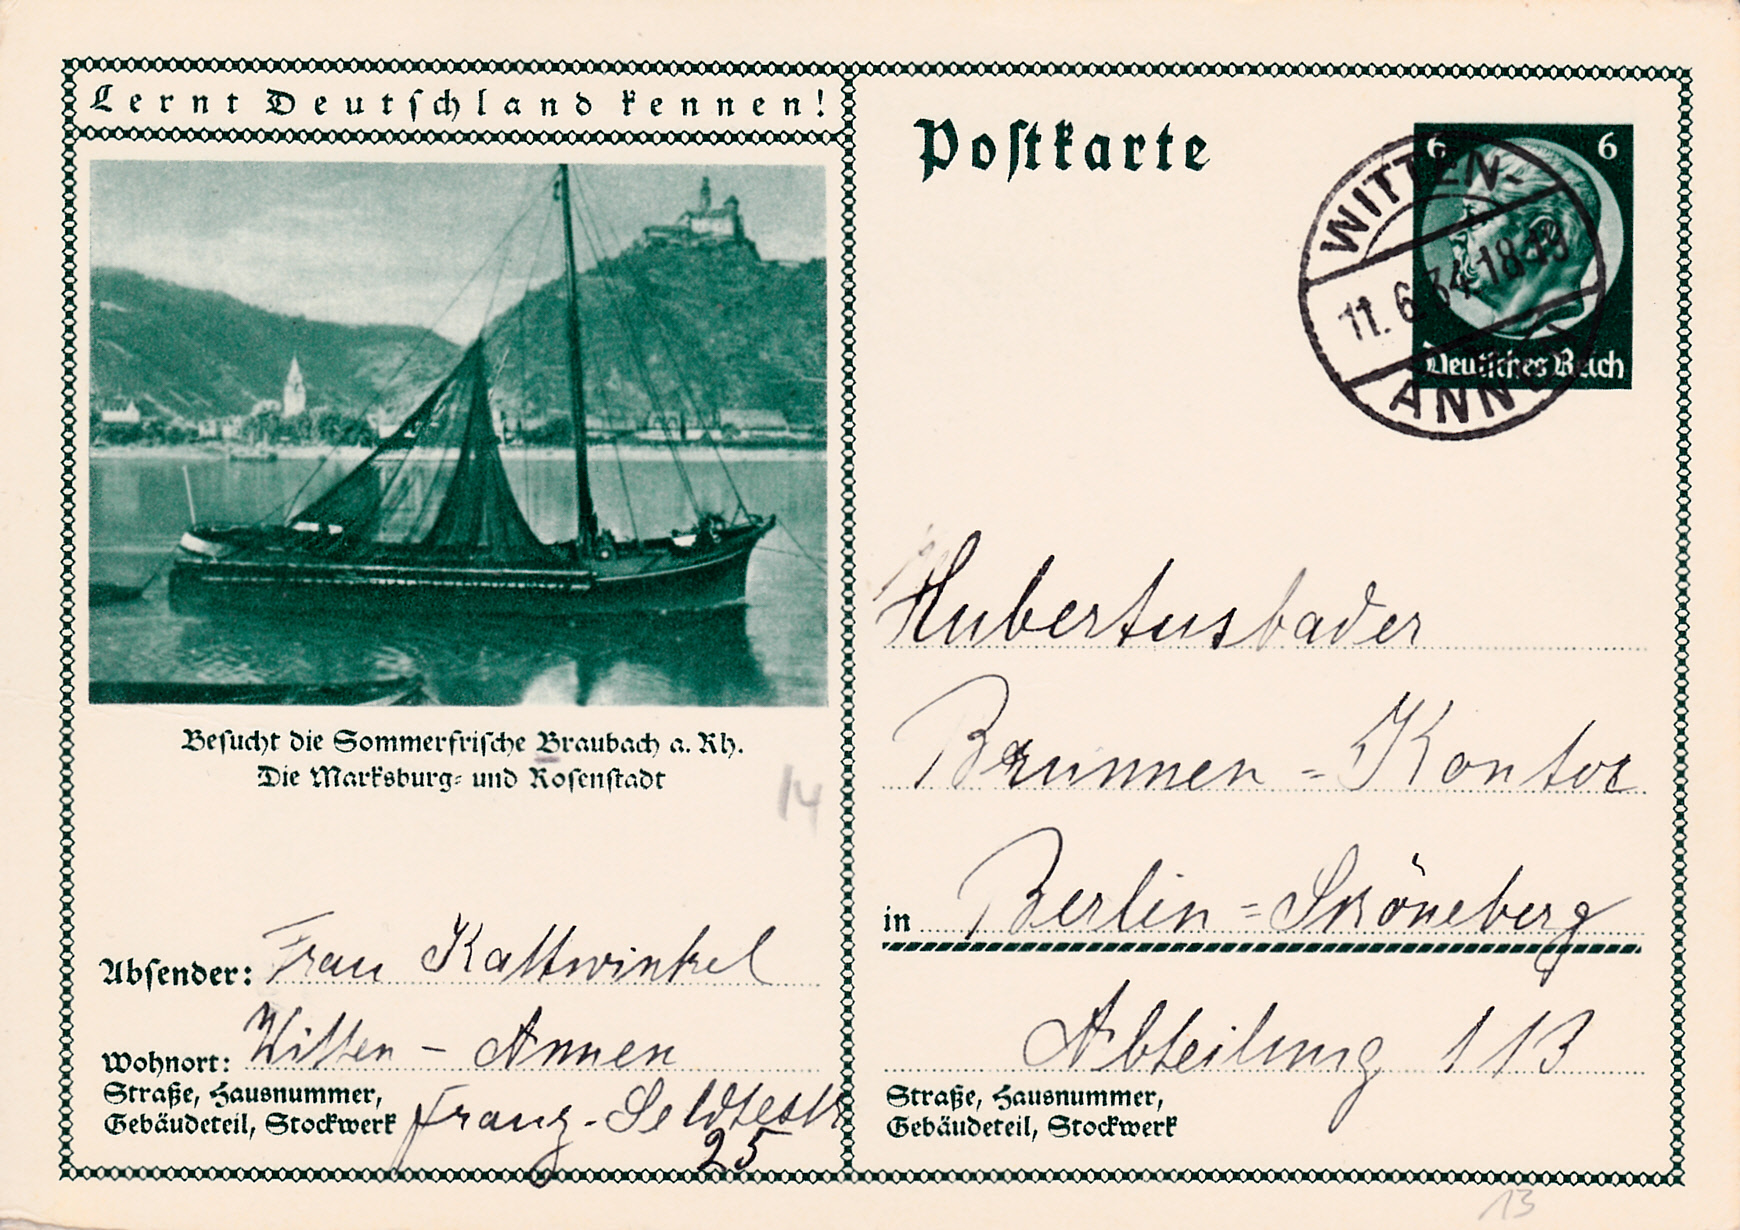 Lernt Deutschland kennen!
Besucht die Sommerfrische Braubach a. Rh.
Die Marksburg- und Rosenstadt
14
Absender: Frau Kattwinkel
Wohnort: Witten - Annen
Straße, Hausnummer,
Gebäudeteil, Stockwerk Franz-Seldtestr
25
Postkarte
6 6
Deutsches Reich
WITTEN-
11.6.34.18-19
ANNEN
Hubertusbader
Brunnen = Kontor
in Berlin = Schöneberg
Abteilung 113
Straße, Hausnummer,
Gebäudeteil, Stockwerk
13